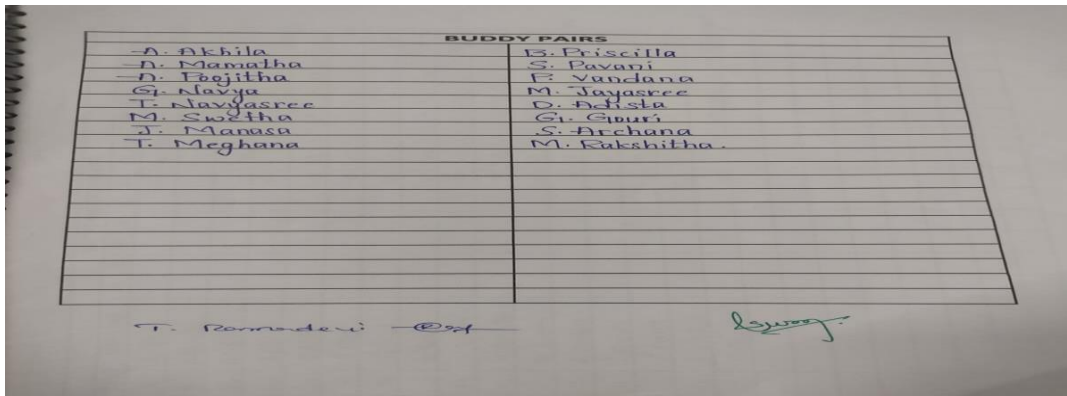 BUDDY PAIRS
A. Akhila B. Priscilla
A. Mamatha S. Pavani
A. Poojitha P. Vandana
G. Navya M. Jayasree
T. Navyasree D. Adista
M. Swetha G. Gouri
J. Manasa S. Archana
T. Meghana M. Rakshitha.
T. Ramadevi